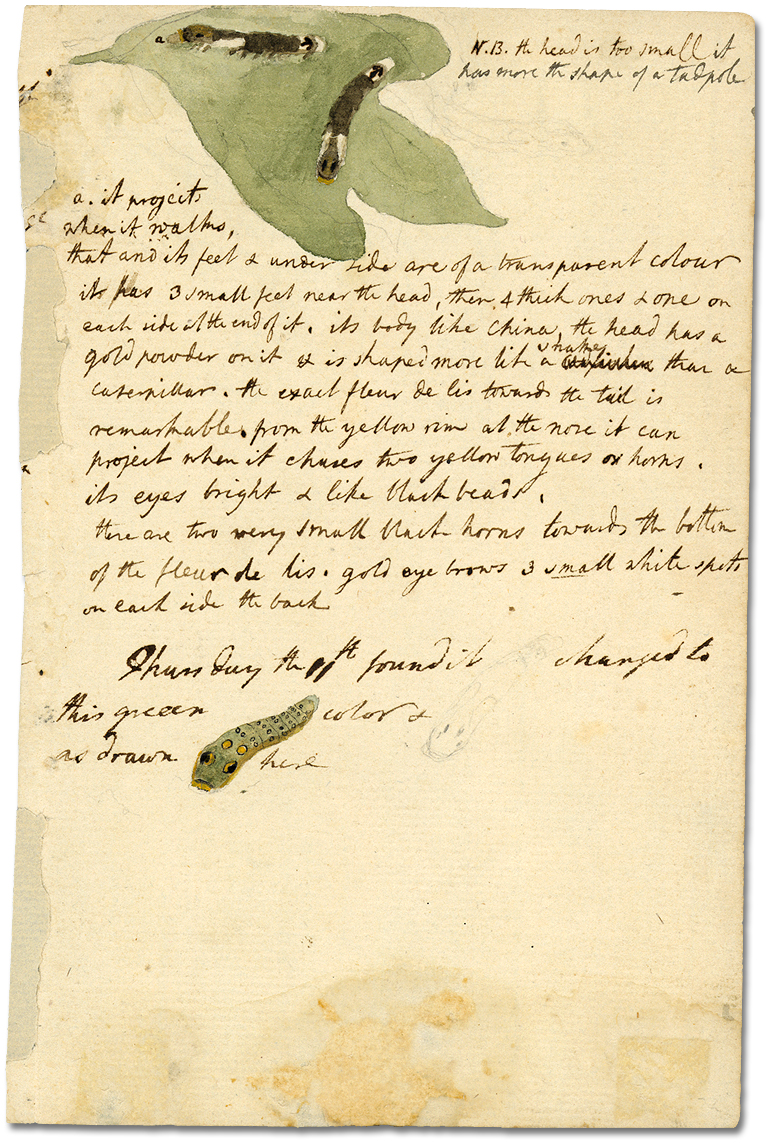 N.B. the head is too small it
has more the shape of a tadpole
a
a. it projects
when it walks,
that and its feet & under side are of a transparent colour
it has 3 small feet near the head, then 4 thick ones & one on
each side at the end of it. its body like China, the head has a
gold powder on it & is shaped more like a snakes than a
caterpillar. the exact fleur de lis towards the tail is
remarkable. from the yellow rim at the nose it can
project when it chuses two yellow tongues or horns.
its eyes bright & like black beads.
there are two very small black horns towards the bottom
of the fleur de lis. gold eye brows 3 small white spots
on each side the back
Thursday the 11th found it changed to
this green color &
as drawn here